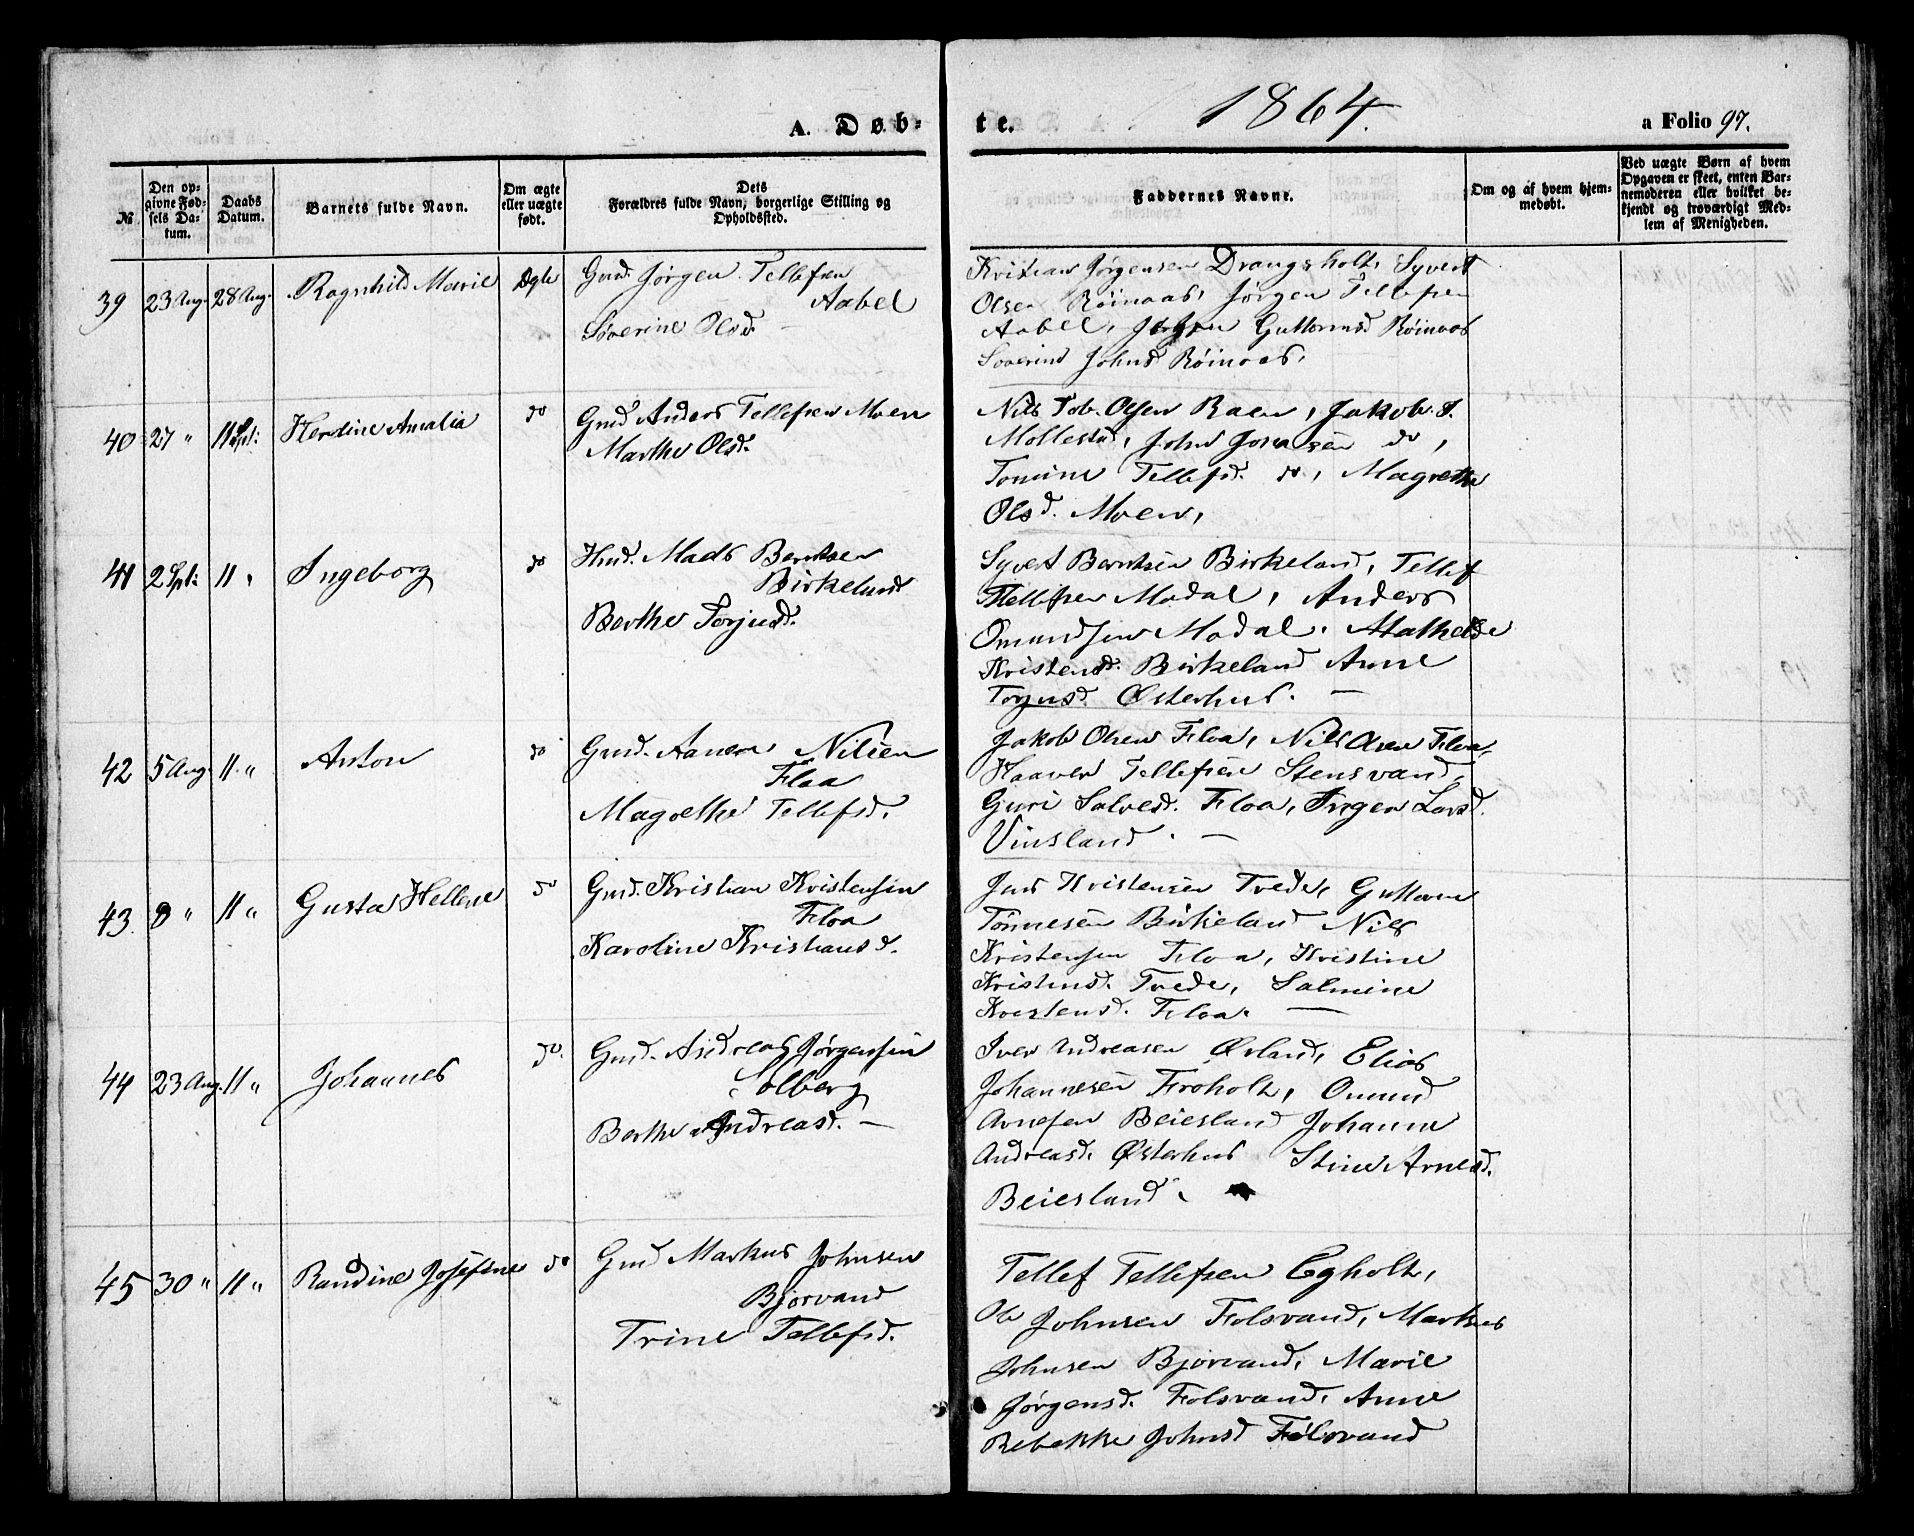 A. Døb-
te.
1864.
a Folio 97.
№
Den op-
givne Fød-
sels Da-
tum.
Daabs
Datum.
Barnets fulde Navn.
Om ægte
eller uægte
født.
Dets
Forældres fulde Navn, borgerlige Stilling og
Opholdssted.
Faddernes Navne.
Om og af hvem hjem-
medøbt.
Ved uægte Børn af hvem
Opgaven er skeet, enten Bar-
nemoderen eller hvilket be-
kjendt og troværdigt Med-
lem af Menigheden.
39 23 Aug. 28 Aug. Ragnhild Marie Ægte
Gmd. Jørgen Tellefsen
Aabel
Severine Olsd. —
Kristian Jørgensen Drangsholt, Syvert
Olsen Røinaas, Jørgen Tellefsen
Aabel, Jørgen Guttormsd Røinaas
Severine Johnsd Røinaas,
40 27 " 11 Spt: Herdine Amalia do
Gmd Anders Tellefsen Moen
Marthe Olsd.
Nils Tob. Olsen Raen, Jakob J.
Mollestad, John Jonasen do,
Tomine Tellefsd. do, Magrethe
Olsd. Moen,
41 2 Spt: 11 " Ingeborg do
Hmd. Mads Berntsen
Birkeland
Berthe Torjusd.
Syvert Berntsen Birkeland, Tellef
Tellefsen Modal, Anders
Omundsen Modal. Mathelde
Kristensd. Birkeland Anne
Torjusd. Østerhus. —
42 5 Aug 11 " Anton do
Gmd. Aanen Nilsen
Floa
Magrethe Tellefsd.
Jakob Olsen Floa, Nils Olsen Floa,
Haaver Tellefsen Stensvand,
Guri Salvesd. Floa, Inger Larsd.
Vinsland. —
43. 9 " 11 " Gusta Hellene do
Gmd. Kristian Kristensen
Floa
Karoline Kristiansd.
Jens Kristensen Tvede, Guttorm
Tønnesen Birkeland Nils
Kristensen Floa, Kristine
Kristensd. Tvede, Salmine
Kristensd. Floa. —
44 23 Aug. 11 " Johannes do.
Gmd. Andreas Jørgensen
Solberg
Berthe Andreasd. —
Iver Andreasen Øvland, Elias
Johannesen Froholt, Omund
Arnesen Beiesland Johanne
Andreasd. Østerhus Stine Arnesd.
Beiesland.
45 30 " 11 " Randine Josefine do
Gmd Markus Johnsen
Bjorvand
Trine Tellefsd.
Tellef Tellefsen Egholt,
Ole Johnsen Folsvand, Markus
Johnsen Bjorvand, Marie
Jørgensd. Folsvand, Anne
Rebekke Johnsd Folsvand